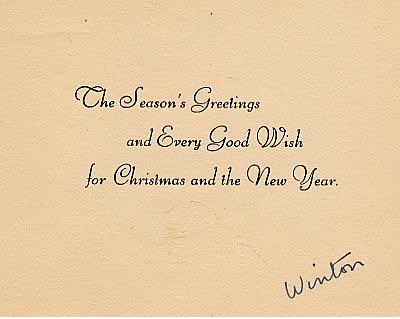 The Season's Greetings
and Every Good Wish
for Christmas and the New Year.
Winton